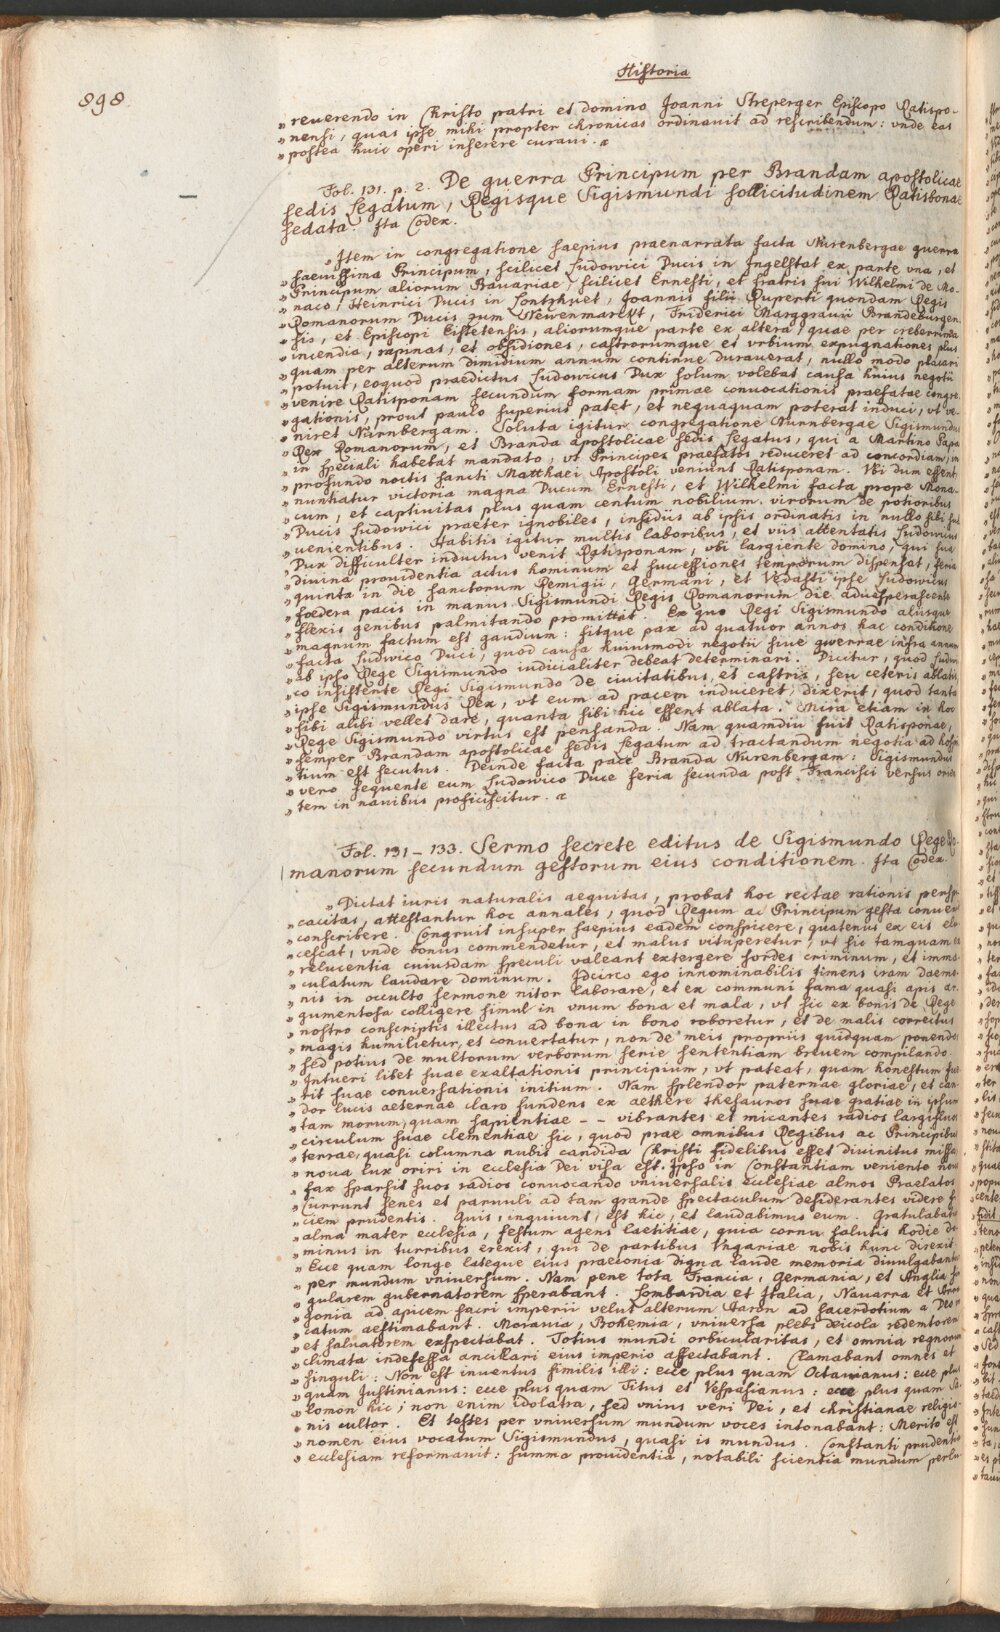 898
Historia
„ reuerendo in Christo patri et domino Joanni Streperger Episcopo Ratispo-
„ nensi, quas ipse mihi propter chronicas ordinauit ad rescribendum: vnde eas
„ postea huic operi inserere curaui.
Fol. 131. p. 2. De guerra Principum per Brandam apostolicae
sedis Legatum, Regisque Sigismundi sollicitudinem Ratisbonae
sedata. Ita Codex.
„ Item in congregatione saepius praenarrata facta Nurenbergae guerra
„ saeuissima Principum, scilicet Ludowici Ducis in Ingelstat ex parte vna, et
„ Principum aliorum Bauariae, scilicet Ernesti, et fratris sui Wilhelmi de Mo-
„ naco, Heinrici Ducis in Lontzhuet, Joannis filii Ruperti quondam Regis
„ Romanorum Ducis zum Newenmarckt, Friderici Marggrauii Brandeburgen-
„ sis, et Episcopi Eistetensis, aliorumque parte ex altera, quae per creberrima
„ incendia, rapinas, et obsidiones, castrorumque et vrbium expugnationes plus
„ quam per alterum dimidium annum continue durauerat, nullo modo placari
„ potuit, eoquod praedictus Ludowicus Dux solum volebat causa huius negotii
„ venire Ratisponam secundum formam primae conuocationis praefatae congre-
„ gationis, prout paulo superius patet, et nequaquam poterat induci, vt ve-
„ niret Nurnbergam. Soluta igitur congregatione Nurnbergae Sigismundus
„ Rex Romanorum, et Branda apostolicae sedis Legatus, qui a Martino Papa
„ in speciali habebat mandato, vt Principes praefatos reduceret ad concordiam, in
„ profundo noctis sancti Matthaei Apostoli veniunt Ratisponam. Vbi dum essent,
„ nuntiatur victoria magna Ducum Ernesti, et Wilhelmi facta prope Mona-
„ cum, et captiuitas plus quam centum nobilium virorum de potioribus
„ Ducis Ludowici praeter ignobiles, insidiis ab ipsis ordinatis in nullo sibi sub-
„ uenientibus. Habitis igitur multis laboribus, et viis attentatis Ludowicus
„ Dux difficulter inductus venit Ratisponam, vbi largiente domino, qui sua
„ diuina prouidentia actus hominum et successiones temporum dispensat, feria
„ quinta in die sanctorum Remigii, Germani, et Vedasti ipse Ludowicus
„ foedera pacis in manus Sigismundi Regis Romanorum die aduesperascente
„ flexis genibus palmitando promittit. Ex quo Regi Sigismundo aliisque
„ magnum factum est gaudium: sitque pax ad quatuor annos hac conditione
„ facta Ludwico Duci, quod causa huiusmodi negotii siue gwerrae infra annum
„ ab ipso Rege Sigismundo iudicialiter debeat determinari. Dicitur, quod Ludwi-
„ co insistente Regi Sigismundo de ciuitatibus, et castris, seu ceteris ablatis
„ ipse Sigismundus Rex, vt eum ad pacem induceret, dixerit, quod tanta
„ sibi alibi vellet dare, quanta sibi hic essent ablata. Mira etiam in hoc
„ Rege Sigismundo virtus est pensanda. Nam quamdiu fuit Ratisponae,
„ semper Brandam apostolicae sedis Legatum ad tractandum negotia ad hospi-
„ tium est secutus. Deinde facta pace Branda Nurenbergam: Sigismundus
„ vero sequente eum Ludowico Duce feria secunda post Francisci versus orien-
„ tem in nauibus proficiscitur.
Fol. 131 – 133. Sermo secrete editus de Sigismundo Rege Ro-
manorum secundum gestorum eius conditionem. Ita Codex.
„ Dictat iuris naturalis aequitas, probat hoc rectae rationis perspi-
„ cacitas, attestantur hoc annales, quod Regum ac Principum gesta conuenit
„ conscribere. Congruit insuper saepius eadem conspicere, quatenus ex eis elu-
„ cescat, vnde bonus commendetur, et malus vituperetur, vt sic tamquam ex
„ relucentia cuiusdam speculi valeant extergere sordes criminum, et imma-
„ culatum laudare dominum. Idcirco ego innominabilis timens iram daemo-
„ nis in occulto sermone nitor laborare, et ex communi fama quasi apis ar-
„ gumentosa colligere simul in vnum bona et mala, vt sic ex bonis de Rege
„ nostro conscriptis illectus ad bona in bono roboretur, et de malis correctus
„ magis humilietur, et conuertatur, non de meis propriis quidquam ponendo,
„ sed potius de multorum verborum serie sententiam breuem compilando.
„ Intueri libet suae exaltationis principium, vt pateat, quam honestum fue-
„ rit suae conuersationis initium. Nam splendor paternae gloriae, et can-
„ dor lucis aeternae claro fundens ex aethere thesauros suae gratiae in ipsum
„ tam morum, quam sapientiae – – vibrantes et micantes radios largifluos
„ circulum suae clementiae sic, quod prae omnibus Regibus ac Principibus
„ terrae, quasi columna nubis candida Christi fidelibus esset diuinitus missa,
„ noua lux oriri in ecclesia Dei visa est. Ipso in Constantiam veniente noua
„ fax sparsit suos radios conuocando vniuersalis ecclesiae almos Praelatos
„ Currunt senes et paruuli ad tam grande spectaculum desiderantes videre fa-
„ ciem prudentis. Quis, inquiunt, est hic, et laudabimus eum. Gratulabatur
„ alma mater ecclesia, festum agens laetitiae, quia cornu salutis hodie do-
„ minus in turribus erexit, qui de partibus Vngariae nobis hunc direxit.
„ Ecce quam longe lateque eius praeconia digna laude memoria diuulgabantur
„ per mundum vniuersum. Nam pene tota Francia, Germania, et Anglia se-
„ gularem gubernatorem sperabant. Lombardia et Italia, Nauarra et Arra-
„ gonia ad apicem sacri imperii velut alterum Aaron ad sacerdotium a Deo vo-
„ catum aestimabant. Morauia, Bohemia, vniuersa plebs deicola redemtorem
„ et saluatorem exspectabat. Totius mundi orbicularitas, et omnia regnorum
„ climata indefessa ancillari eius imperio affectabant. Clamabant omnes et
„ singuli: Non est inuentus similis illi: ecce plus quam Octauianus: ecce plus
„ quam Justinianus: ecce plus quam Titus et Vespasianus: ecce plus quam Sa-
„ lomon hic; non enim idolatra, sed vnius veri Dei, et christianae religio-
„ nis cultor. Et testes per vniuersum mundum voces intonabant: Merito est
„ nomen eius vocatum Sigismundus, quasi is mundus. Constanti prudentia
„ ecclesiam reformauit: summa prouidentia, notabili scientia mundum perlu-